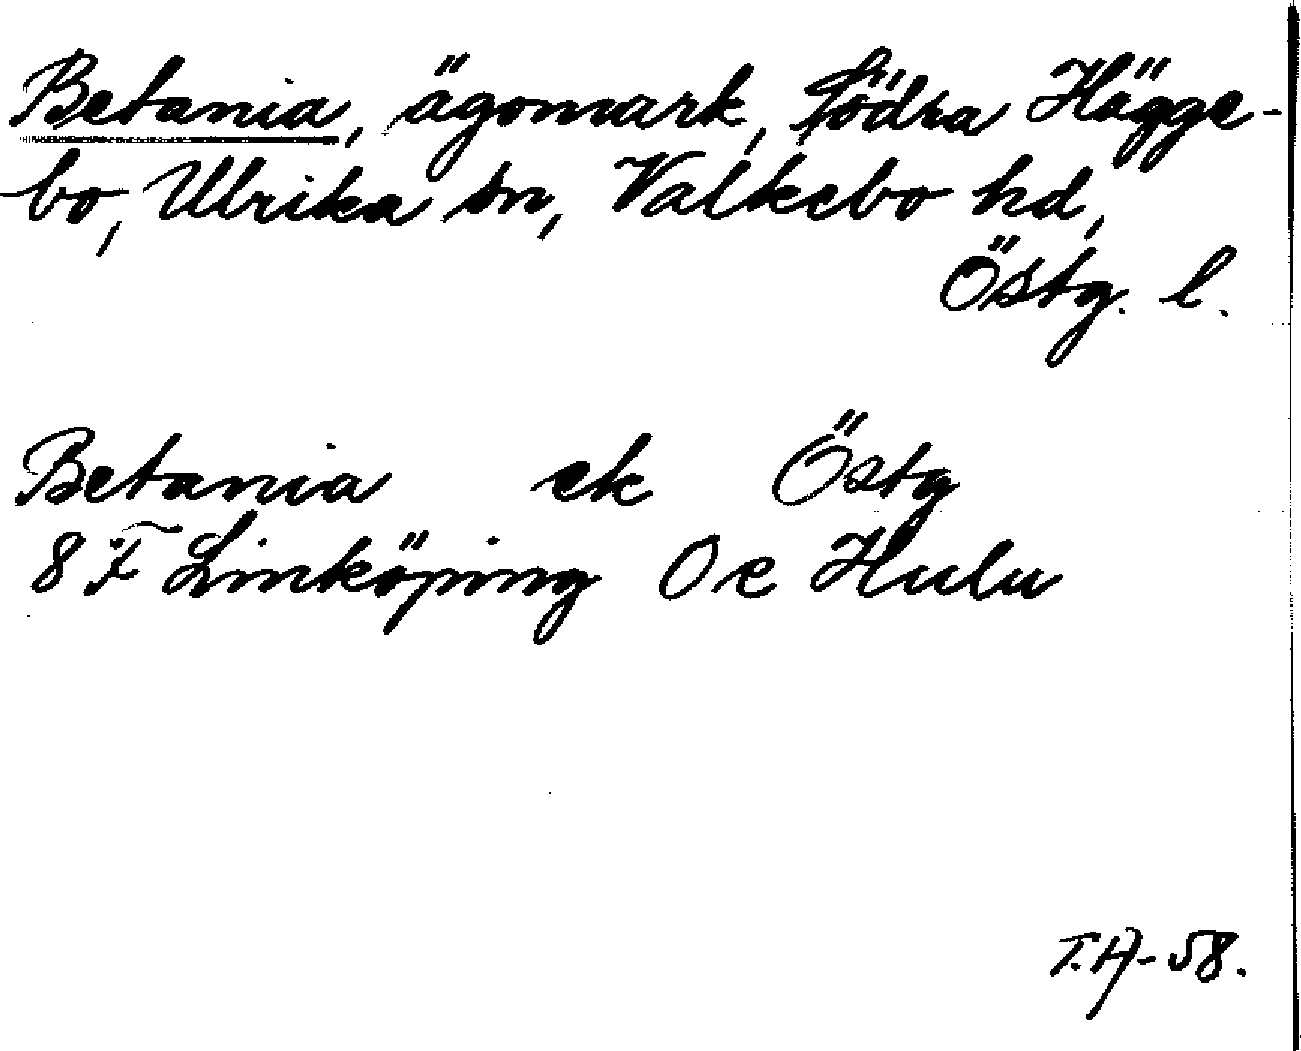 Betania, ägomark, Södra Hägge-
bo, Ulrika sn, Valkebo hd,
Östg. l.
Betania ek Östg
8 F Linköping Oe Hulu
T.A-58.